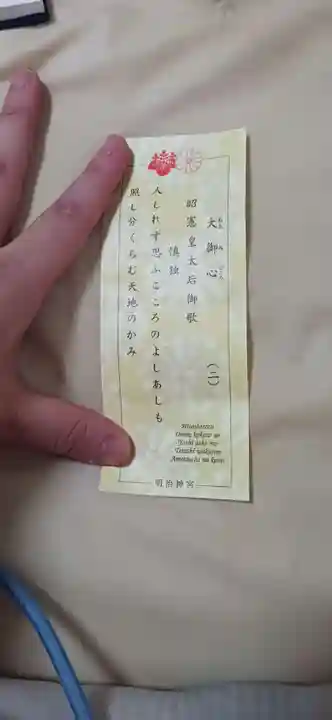 大御心
おおみごころ
（二）
昭憲皇太后御歌
慎独
人しれず思ふこころのよしあしも
照し分くらむ天地のかみ
Hitoshirezu
Omou kokoro no
Yoshi ashi mo
Terashi wakuran
Ametsuchi no kami
明治神宮